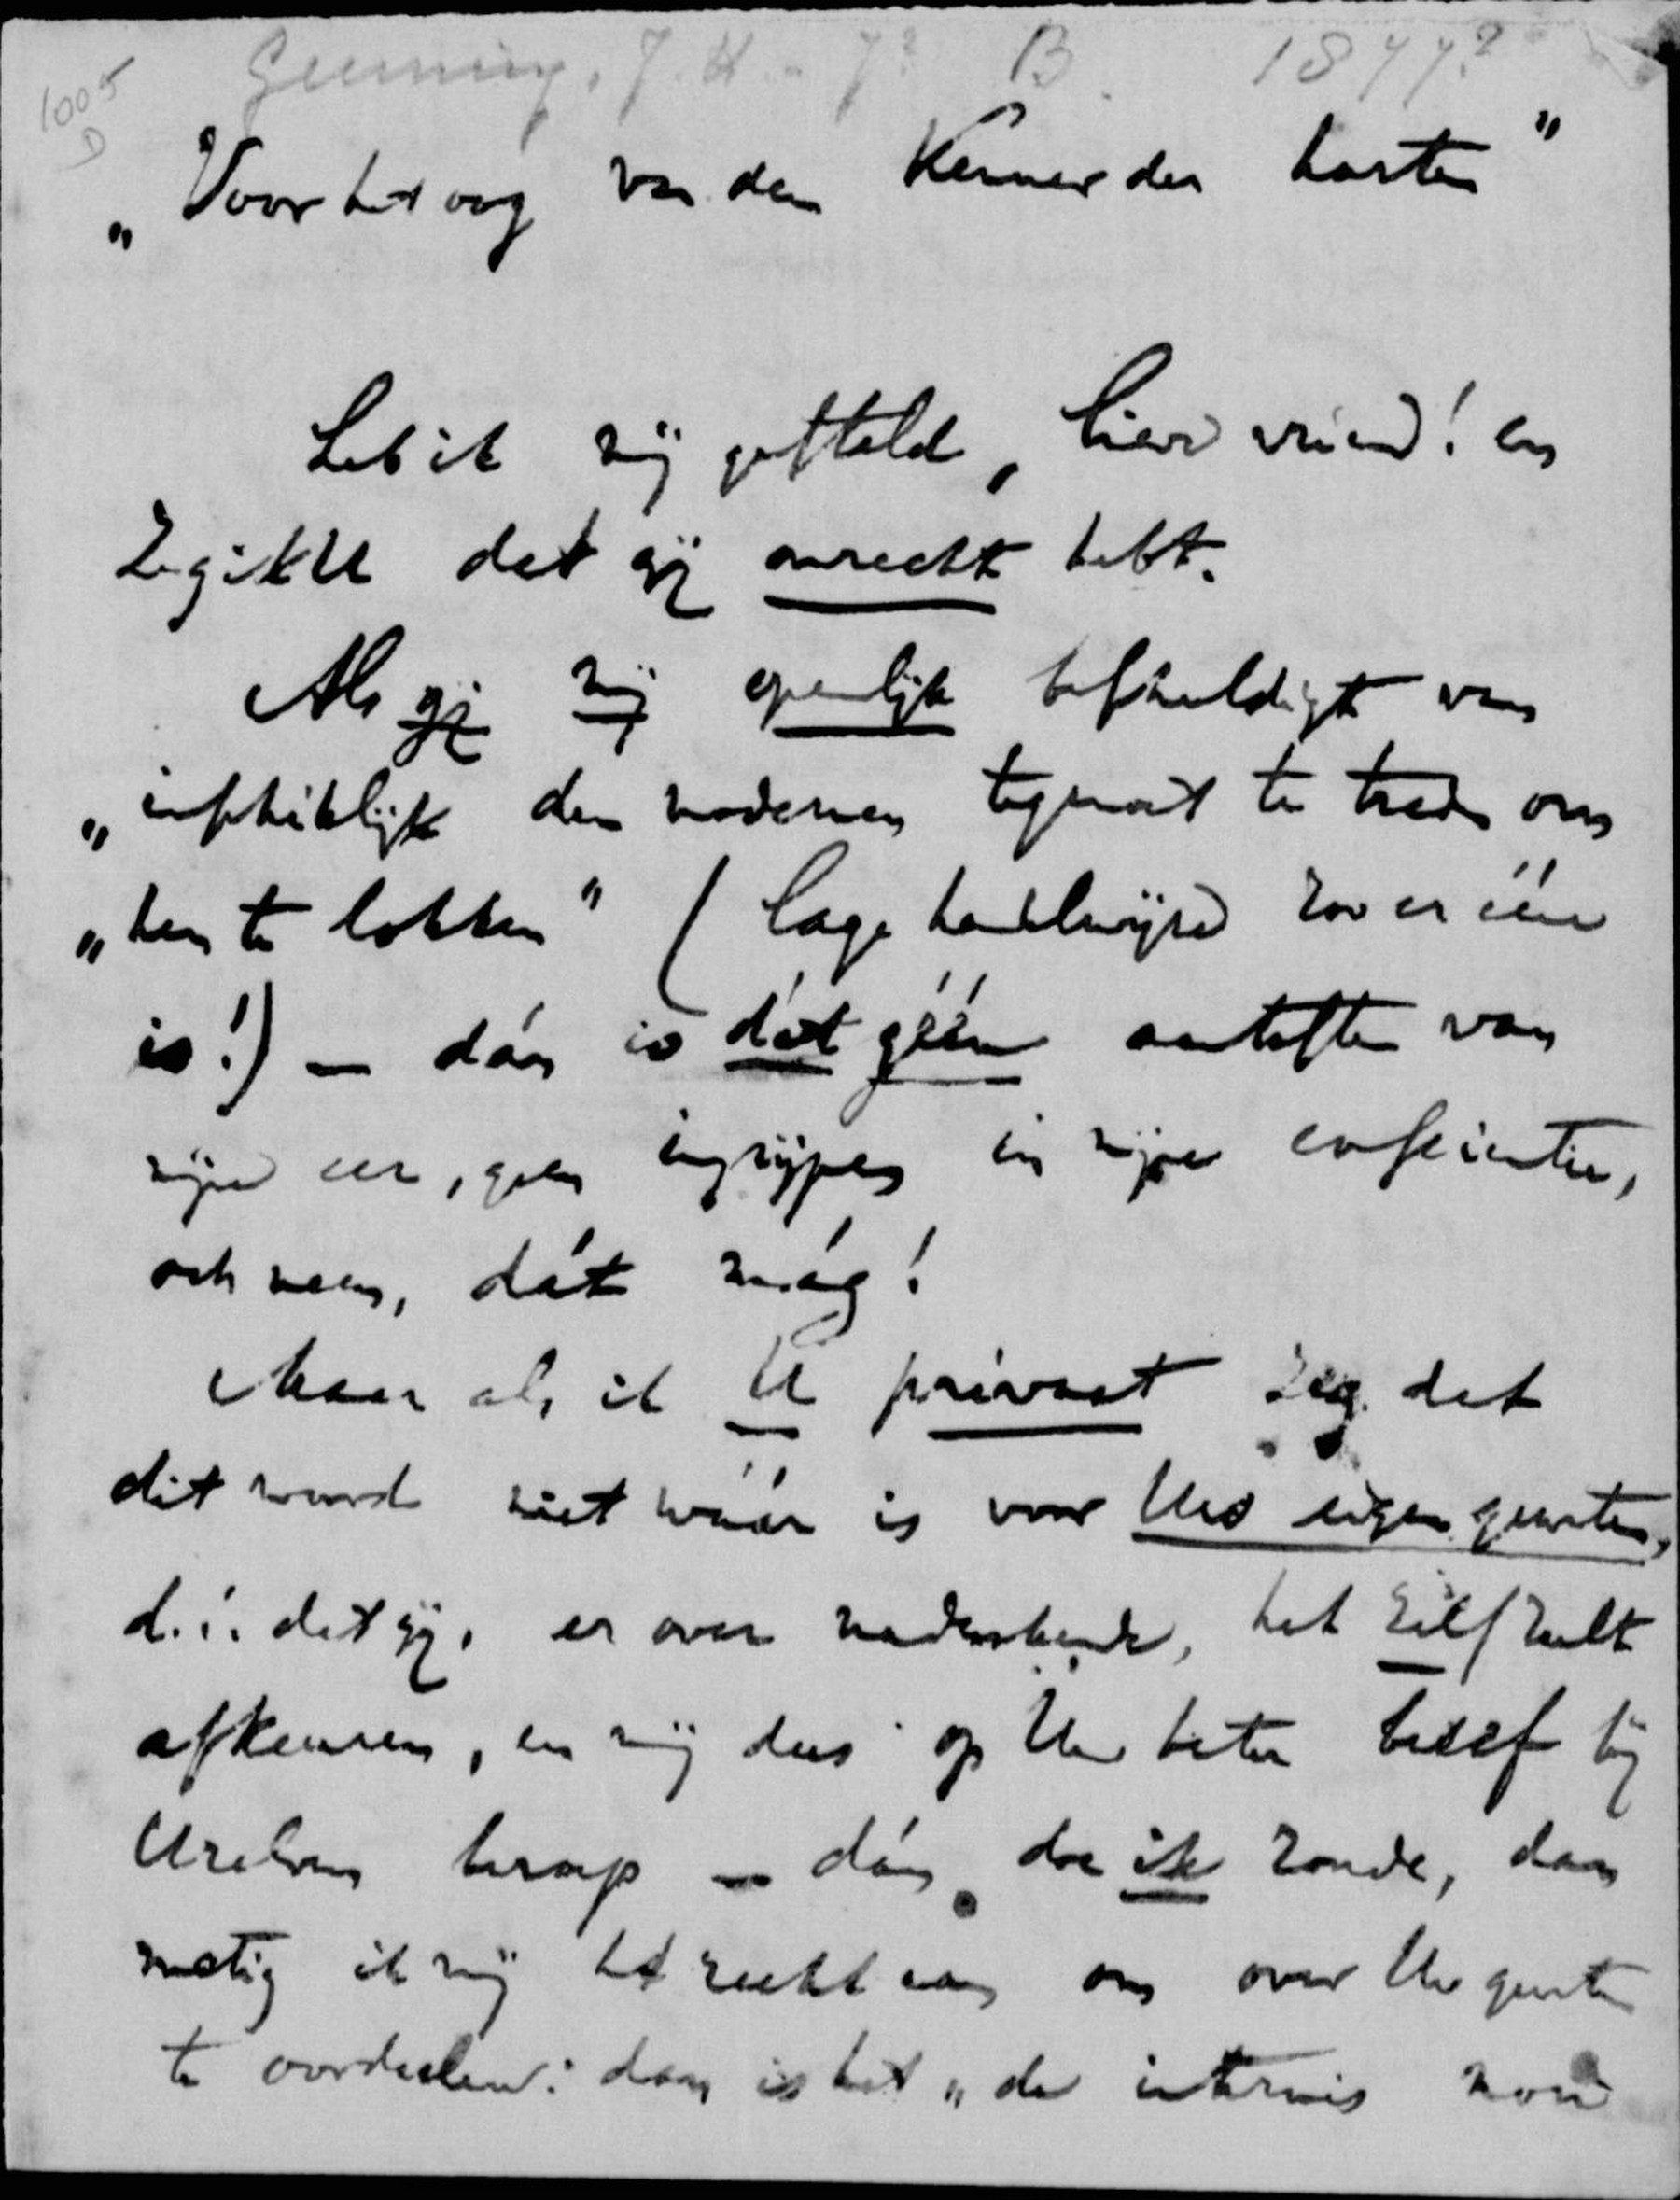 Gunning, J. H. - Jr B. 1877?
1005
D
„Voor het oog van den Kenner der harten"
heb ik mij gesteld, lieve vriend! en
zeg ik U dat gij onrecht hebt.
Als gij mij openlijk beschuldigt van
„inschiklijk den modernen tegemoet te treden om
„hen te lokken" (lage handelwijze zoo er ééne
is!) – dán is dát géén aantasten van
mijne eer, geen ingrijpen in mijne conscientie,
och neen, dát mág!
Maar als ik U privaat zeg dat
dit woord niet wáár is voor Uw eigen geweten,
d.i. dat gij, er over nadenkende, het zelf zult
afkeuren, en mij dus op Uw beter besef bij
Uzelven beroep – dán doe ik zonde, dan
matig ik mij het recht aan om over Uw geweten
te oordeelen: dan is het „de internis non